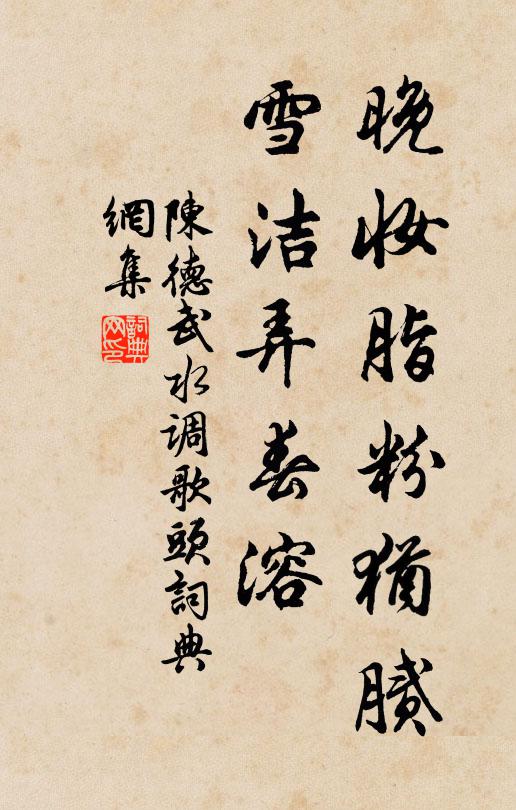 晚妆脂粉犹腻
雪洁弄春溶
陳德武水调歌頭詞典
網集
詞典
网印